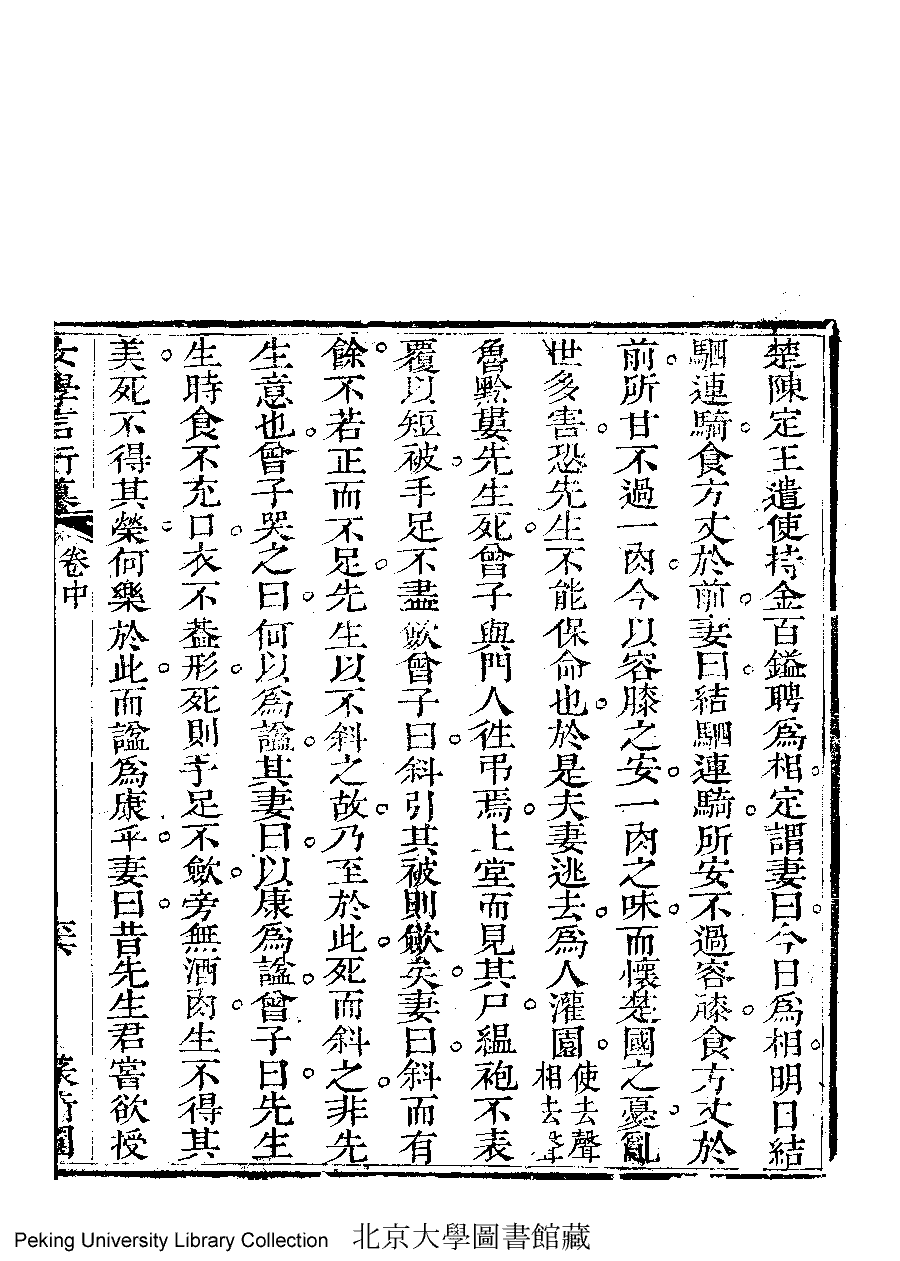 楚陳定王遣使持金百鎰聘爲相。定謂妻曰。今日爲相。明日結
駟連騎。食方丈於前。妻曰。結駟連騎。所安不過容膝。食方丈於
前。所甘不過一肉。今以容膝之安。一肉之味。而懷楚國之憂。亂
世多害。恐先生不能保命也。於是夫妻逃去。爲人灌園。使去聲相去聲
魯黔婁先生死。曾子與門人徃弔焉。上堂而見其尸。緼袍不表
覆以短被。手足不盡歛。曾子曰。斜引其被則歛矣。妻曰。斜而有
餘。不若正而不足。先生以不斜之故。乃至於此。死而斜之。非先
生意也。曾子哭之曰。何以爲諡。其妻曰。以康爲諡。曾子曰。先生
生時食不充口。衣不葢形。死則手足不歛。旁無酒肉。生不得其
美。死不得其榮。何樂於此。而諡爲康乎。妻曰。昔先生君嘗欲授
女學言行纂
卷中
六